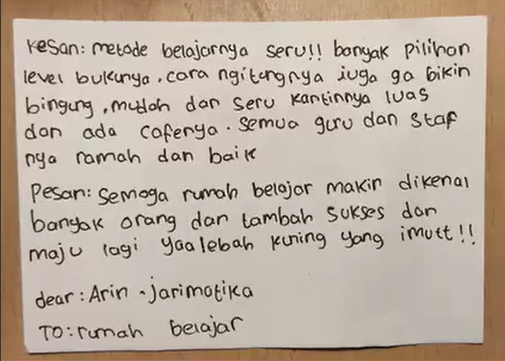 Kesan: metode belajarnya seru!! banyak pilihan
level bukunya, cara ngitungnya juga ga bikin
bingung, mudah dan seru kantinnya luas
dan ada cafenya. semua guru dan staf
nya ramah dan baik
Pesan: Semoga rumah belajar makin dikenal
banyak orang dan tambah sukses dan
maju lagi yaa lebah kuning yang imutt!!
dear: Arin - jarimatika
TO: rumah belajar